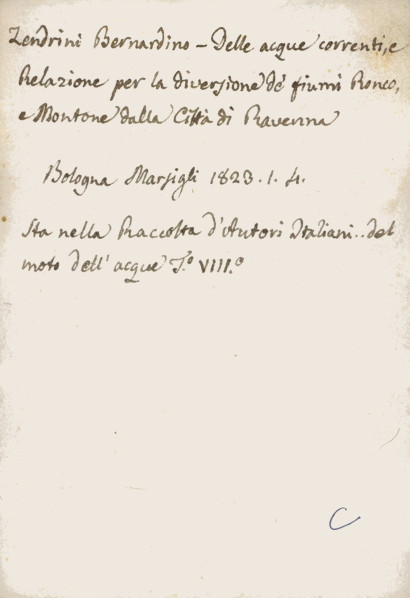 Zendrini Bernardino - Delle acque correnti, e
Relazione per la diversione de' fiumi Ronco,
e Montone dalla Città di Ravenna
Bologna Marsigli 1823. 1. 4.
Sta nella Raccolta d'Autori Italiani.. del
moto dell' acque T.º VIII.º
C